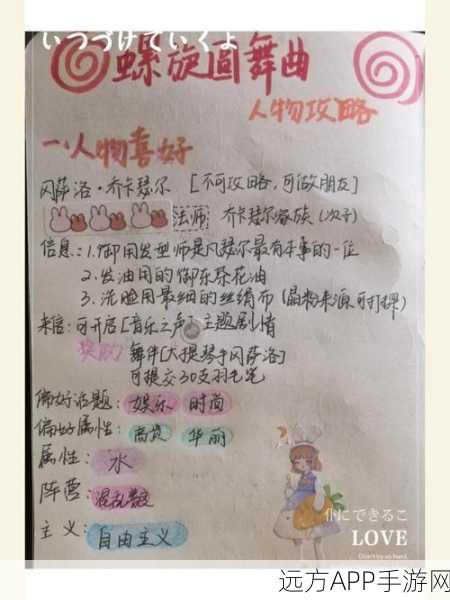 いつづけていくよ
螺旋圆舞曲
人物攻略
一、人物喜好
冈萨洛·乔卡瑟尔 [不可攻略,可做朋友]
法师 乔卡瑟尔家族(次子)
信息:1.御用发型师是凡瑟尔最有本事的一位
2.发油用的御东昼花油
3.洗脸用最细的丝绢布(晶粉来源,可打牌)
来信:可开启[音乐之声]主题剧情
奖励 舞伴[大提琴手冈萨洛]
可提交30支羽毛笔
偏好话题:娱乐 时尚
偏好属性:高贵 华丽
属性:水
阵营:混乱
主义:自由主义
仆にできるこ
LOVE
Don't try so hard.
远方APP手游网